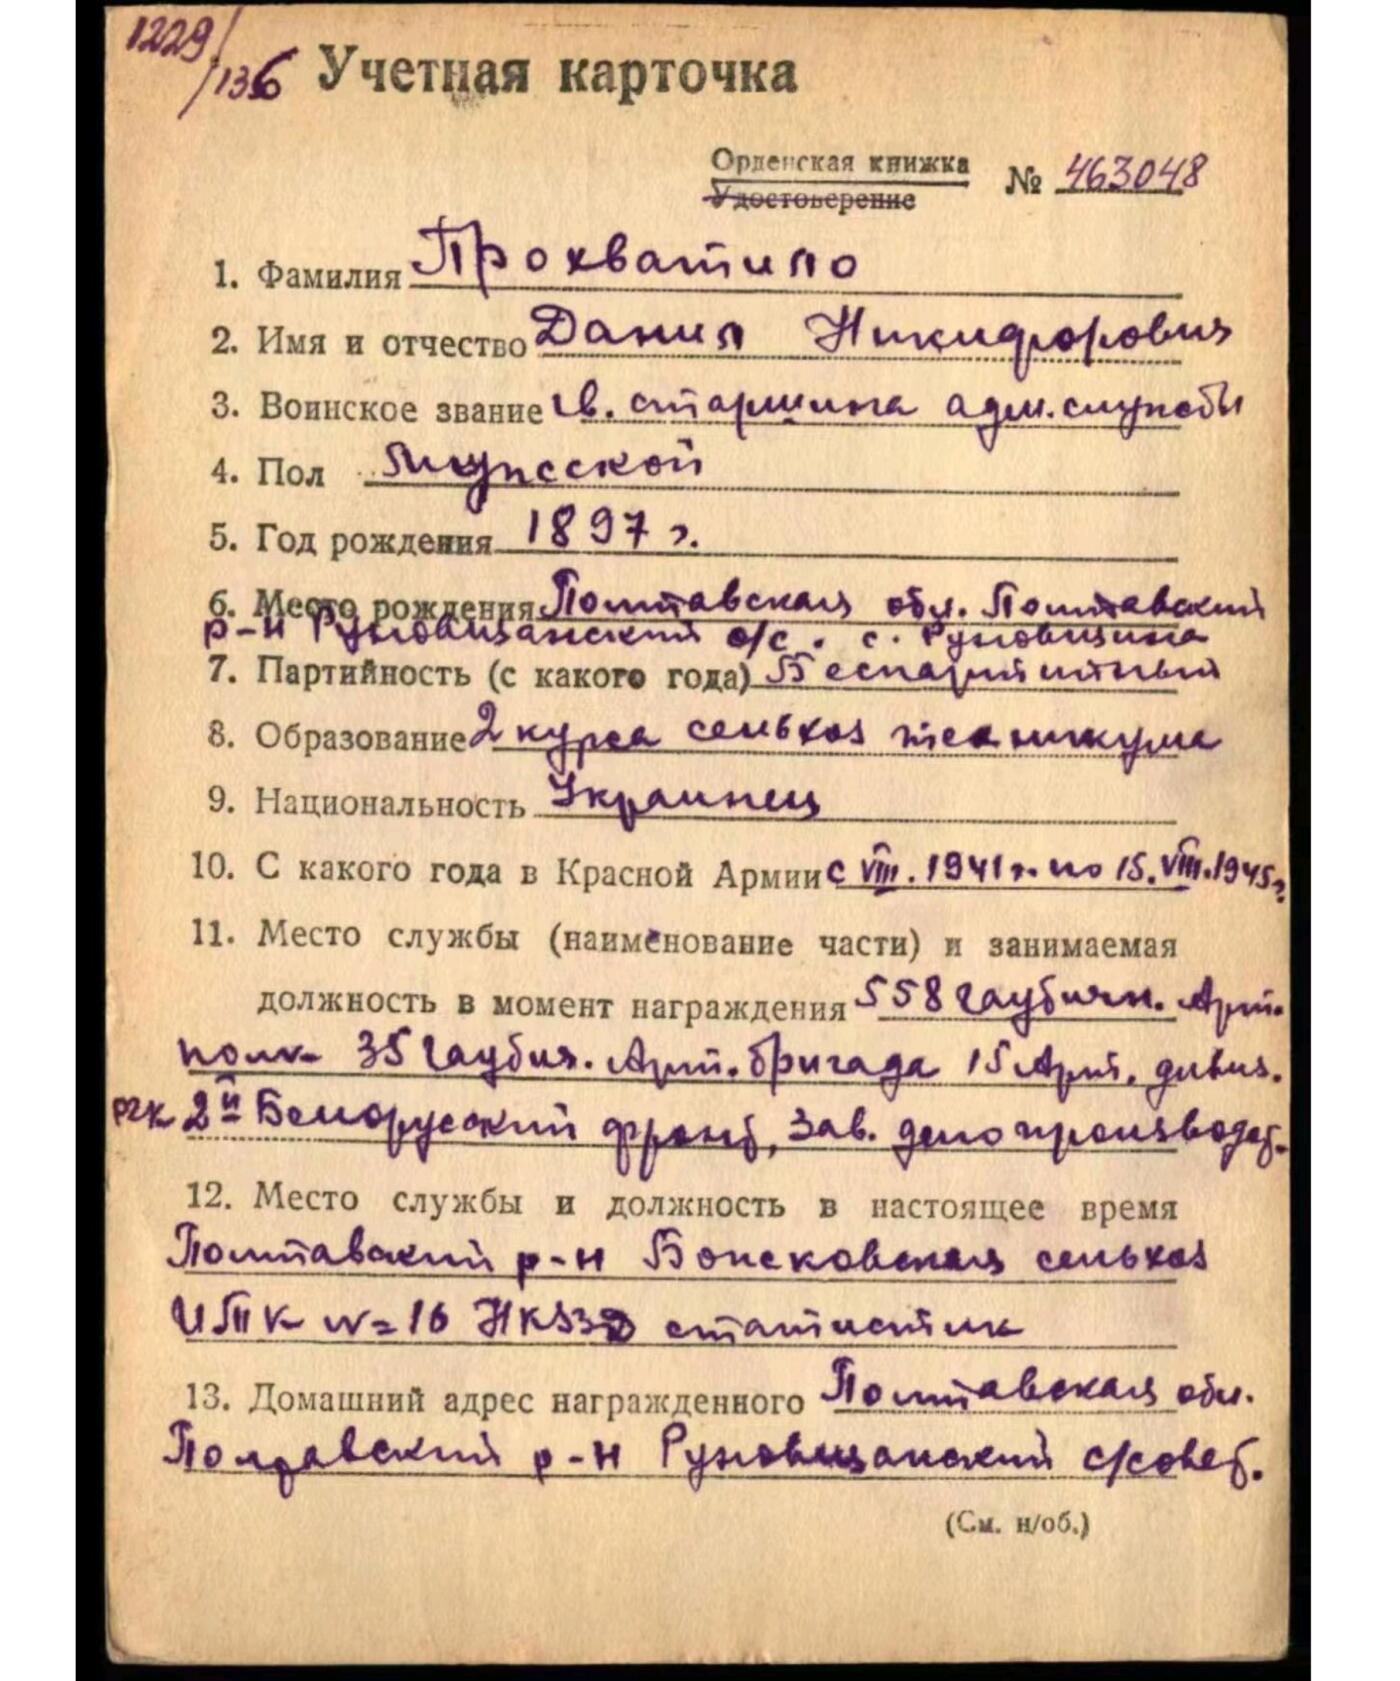 1229/136
Учетная карточка
Орденская книжка
Удостоверение
№ 463048
1. Фамилия Прохватило
2. Имя и отчество Данил Никифорович
3. Воинское звание гв. старшина адм. службы
4. Пол Мужсской
5. Год рождения 1897 г.
6. Место рождения Полтавская обл. Полтавский
р-н Руновщанский с/с. с. Руновщина
7. Партийность (с какого года) Беспартийный
8. Образование 2 курса сельхоз техникума
9. Национальность Украинец
10. С какого года в Красной Армии с VIII. 1941 г. по 15. VIII. 1945 г.
11. Место службы (наименование части) и занимаемая
должность в момент награждения 558 гаубичн. Арт.
полк 35 гаубич. Арт. бригада 15 Арт. дивиз.
РГК 2й Белорусский фронт, Зав. делопроизводст.
12. Место службы и должность в настоящее время
Полтавский р-н сельхоз
ИТК №=16 статистик
13. Домашний адрес награжденного Полтавская обл.
Полтавский р-н Руновщанский с/совет.
(См. н/об.)